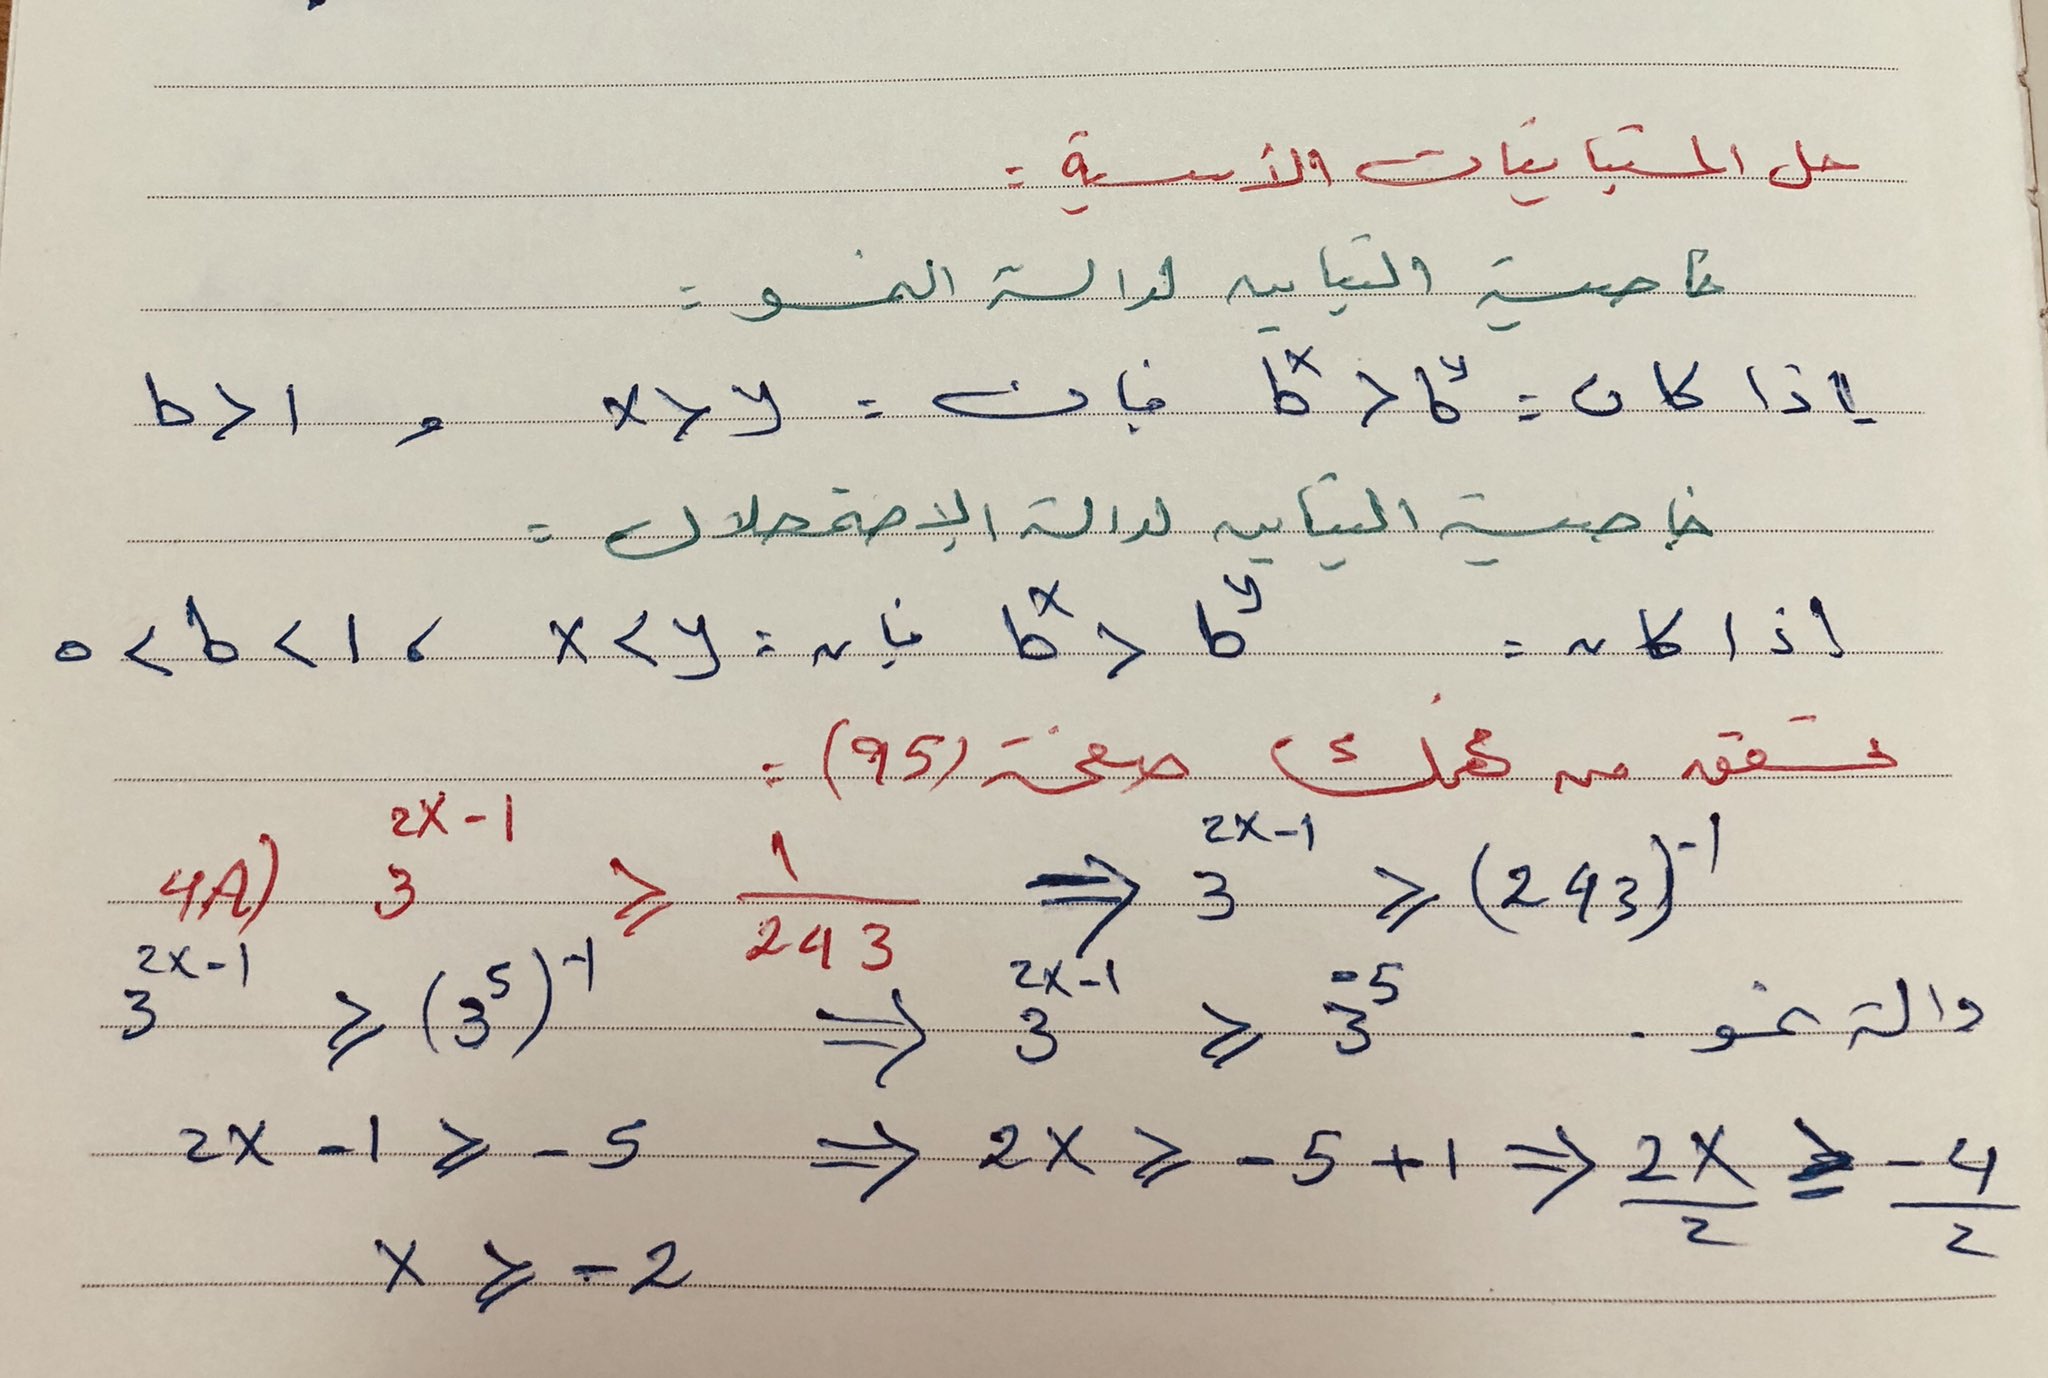 حل المتباينات الأسية :
خاصية التباين لدالة النمو :
إذا كان : b^x > b^y فإن : x > y و b > 1
خاصية التباين لدالة الإضمحلال :
اذا كان : b^x > b^y فإن : x < y ، 0 < b < 1
تحقق من فهمك صفحة (95) :
4A) 3^{2x-1} ≥ \frac{1}{243} ⇒ 3^{2x-1} ≥ (243)^{-1}
3^{2x-1} ≥ (3^5)^{-1} ⇒ 3^{2x-1} ≥ 3^{-5} دالة نمو .
2x - 1 ≥ -5 ⇒ 2x ≥ -5 + 1 ⇒ \frac{2x}{2} ≥ \frac{-4}{2}
x ≥ -2